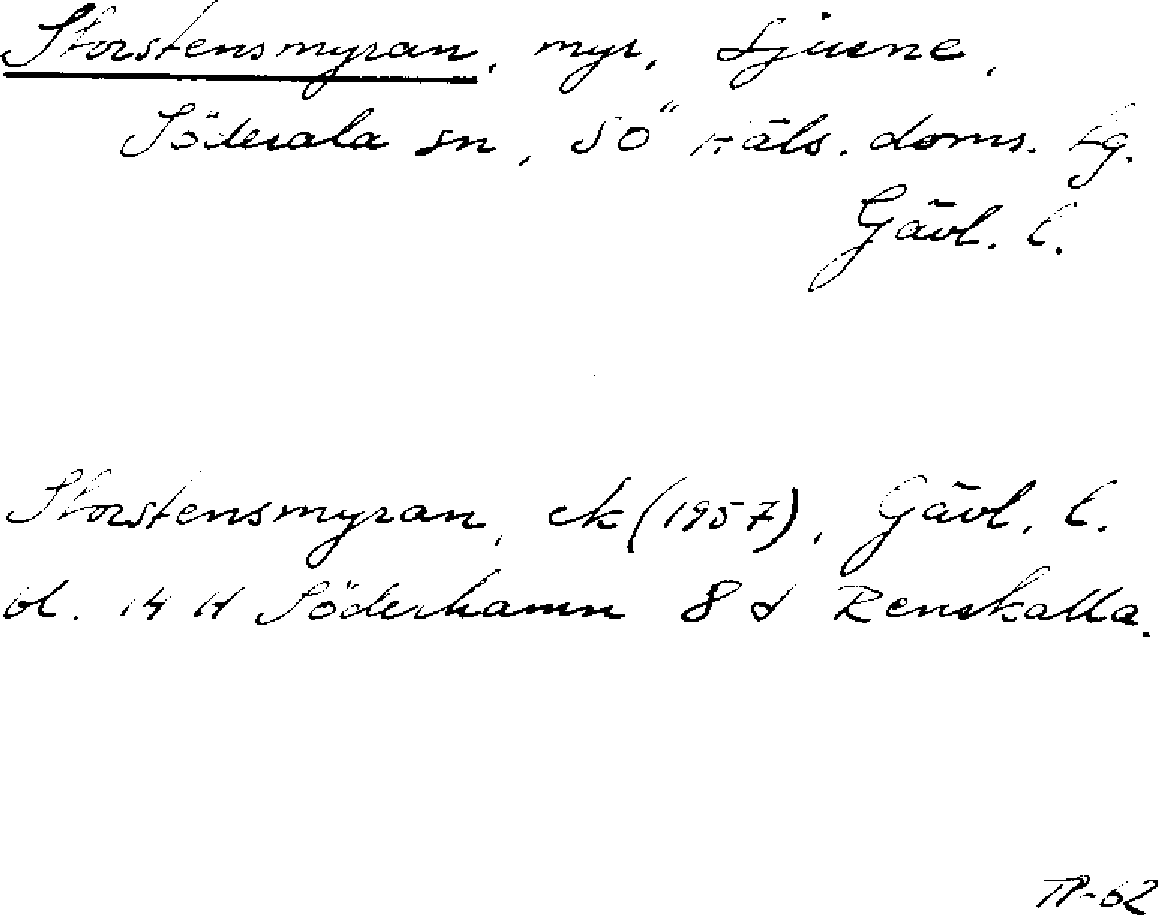 Storstensmyran, myr, Ljusne,
Söderala sn, SÖ Häls. doms. lg.
Gävl. l.
Storstensmyran, ek (1957), Gävl. l.
bl. 14 H Söderhamn 8 d Renskalla.
TP-62